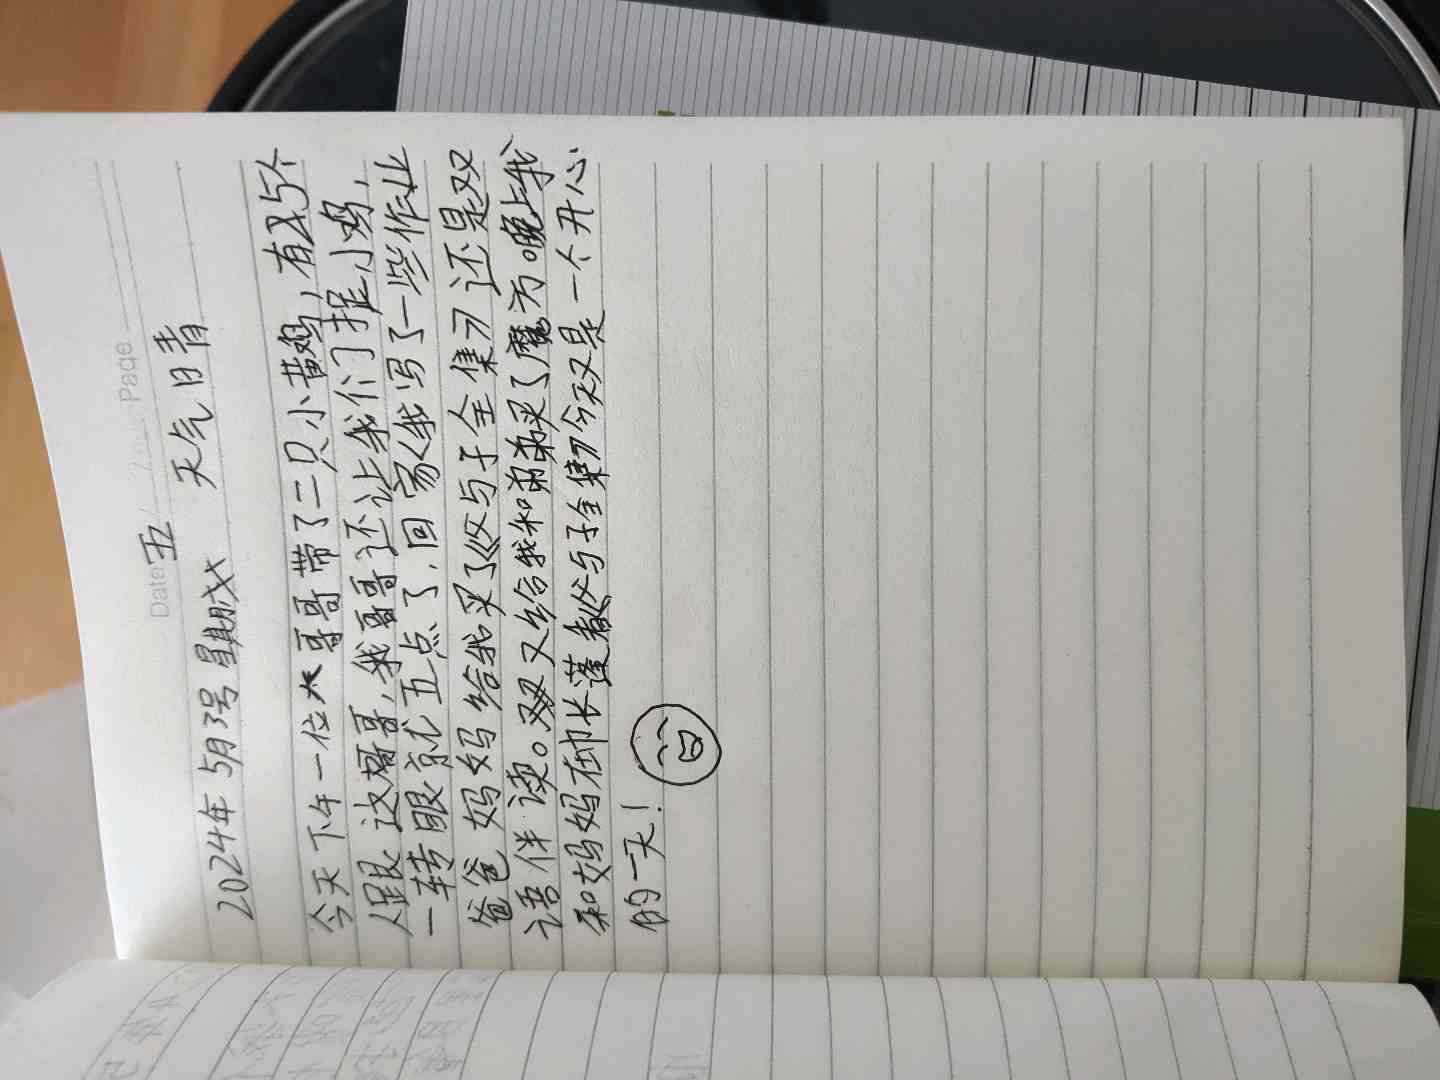 Date
Page
五
2024年5月3号 星期 天气晴
今天下午一位大哥哥带了二只小黄鸡,有5个
人跟这哥哥,我哥哥还让我们捉小鸡,
一转眼就五点了,回家我写了一些作业
爸爸妈妈给我买了《父与子全集》还是双
语伴读。又给我和弟弟买了魔方晚上我
和妈妈在帐篷看《父与子全集》今天又是一个开心
的一天!